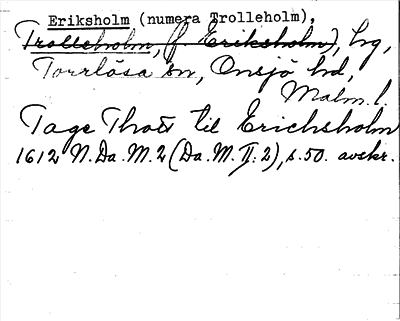 Eriksholm (numera Trolleholm),
Trolleholm, (f. Eriksholm), hg,
Torrlösa sn, Onsjö hd,
Malm. l.
Tage Thott til Erichsholm
1612 N. Da. M. 2 (Da. M. II: 2), s. 50. avskr.